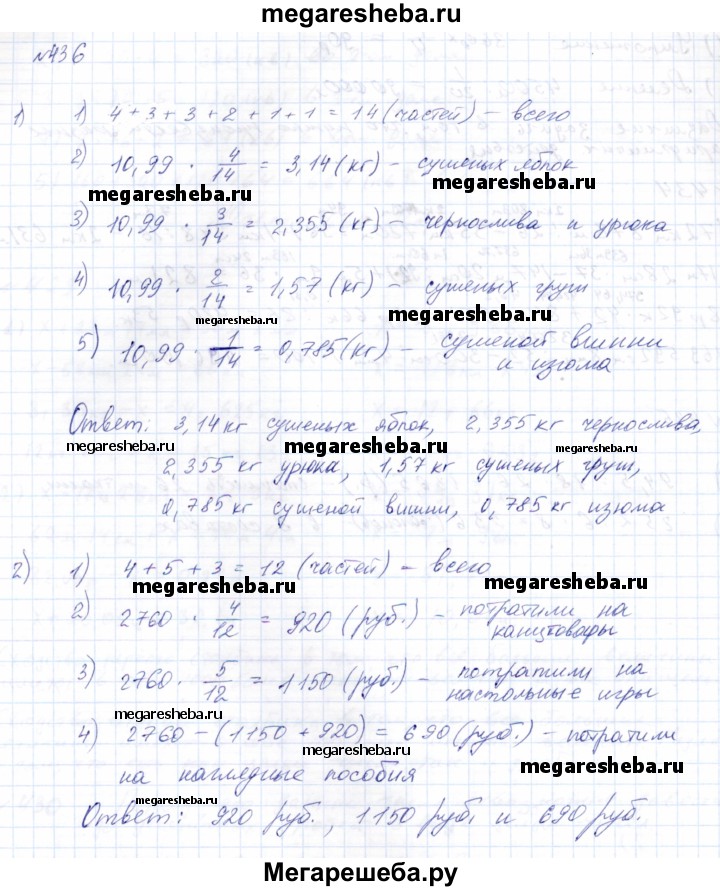 megaresheba.ru
№436
1) 1) 4+3+3+2+1+1=14 (частей) – всего
2) 10,99 · 4/14 = 3,14 (кг) – сушеных яблок
megaresheba.ru megaresheba.ru
3) 10,99 · 3/14 = 2,355 (кг) – чернослива и урюка
4) 10,99 · 2/14 = 1,57 (кг) – сушеных груш
megaresheba.ru megaresheba.ru
5) 10,99 · 1/14 = 0,785 (кг) – сушеной вишни
и изюма
Ответ: 3,14 кг сушеных яблок, 2,355 кг чернослива,
megaresheba.ru megaresheba.ru megaresheba.ru
2,355 кг урюка, 1,57 кг сушеных груш,
0,785 кг сушеной вишни, 0,785 кг изюма
2) 1) 4+5+3=12 (частей) – всего
megaresheba.ru megaresheba.ru
2) 2760 · 4/12 = 920 (руб.) – потратили на
канцтовары
megaresheba.ru
3) 2760 · 5/12 = 1150 (руб.) – потратили на
настольные игры
megaresheba.ru
4) 2760 – (1150 + 920) = 690 (руб.) – потратили
megaresheba.ru
на наглядные пособия
megaresheba.ru
megaresheba.ru
Ответ: 920 руб., 1150 руб. и 690 руб.
Мегарешеба.ру